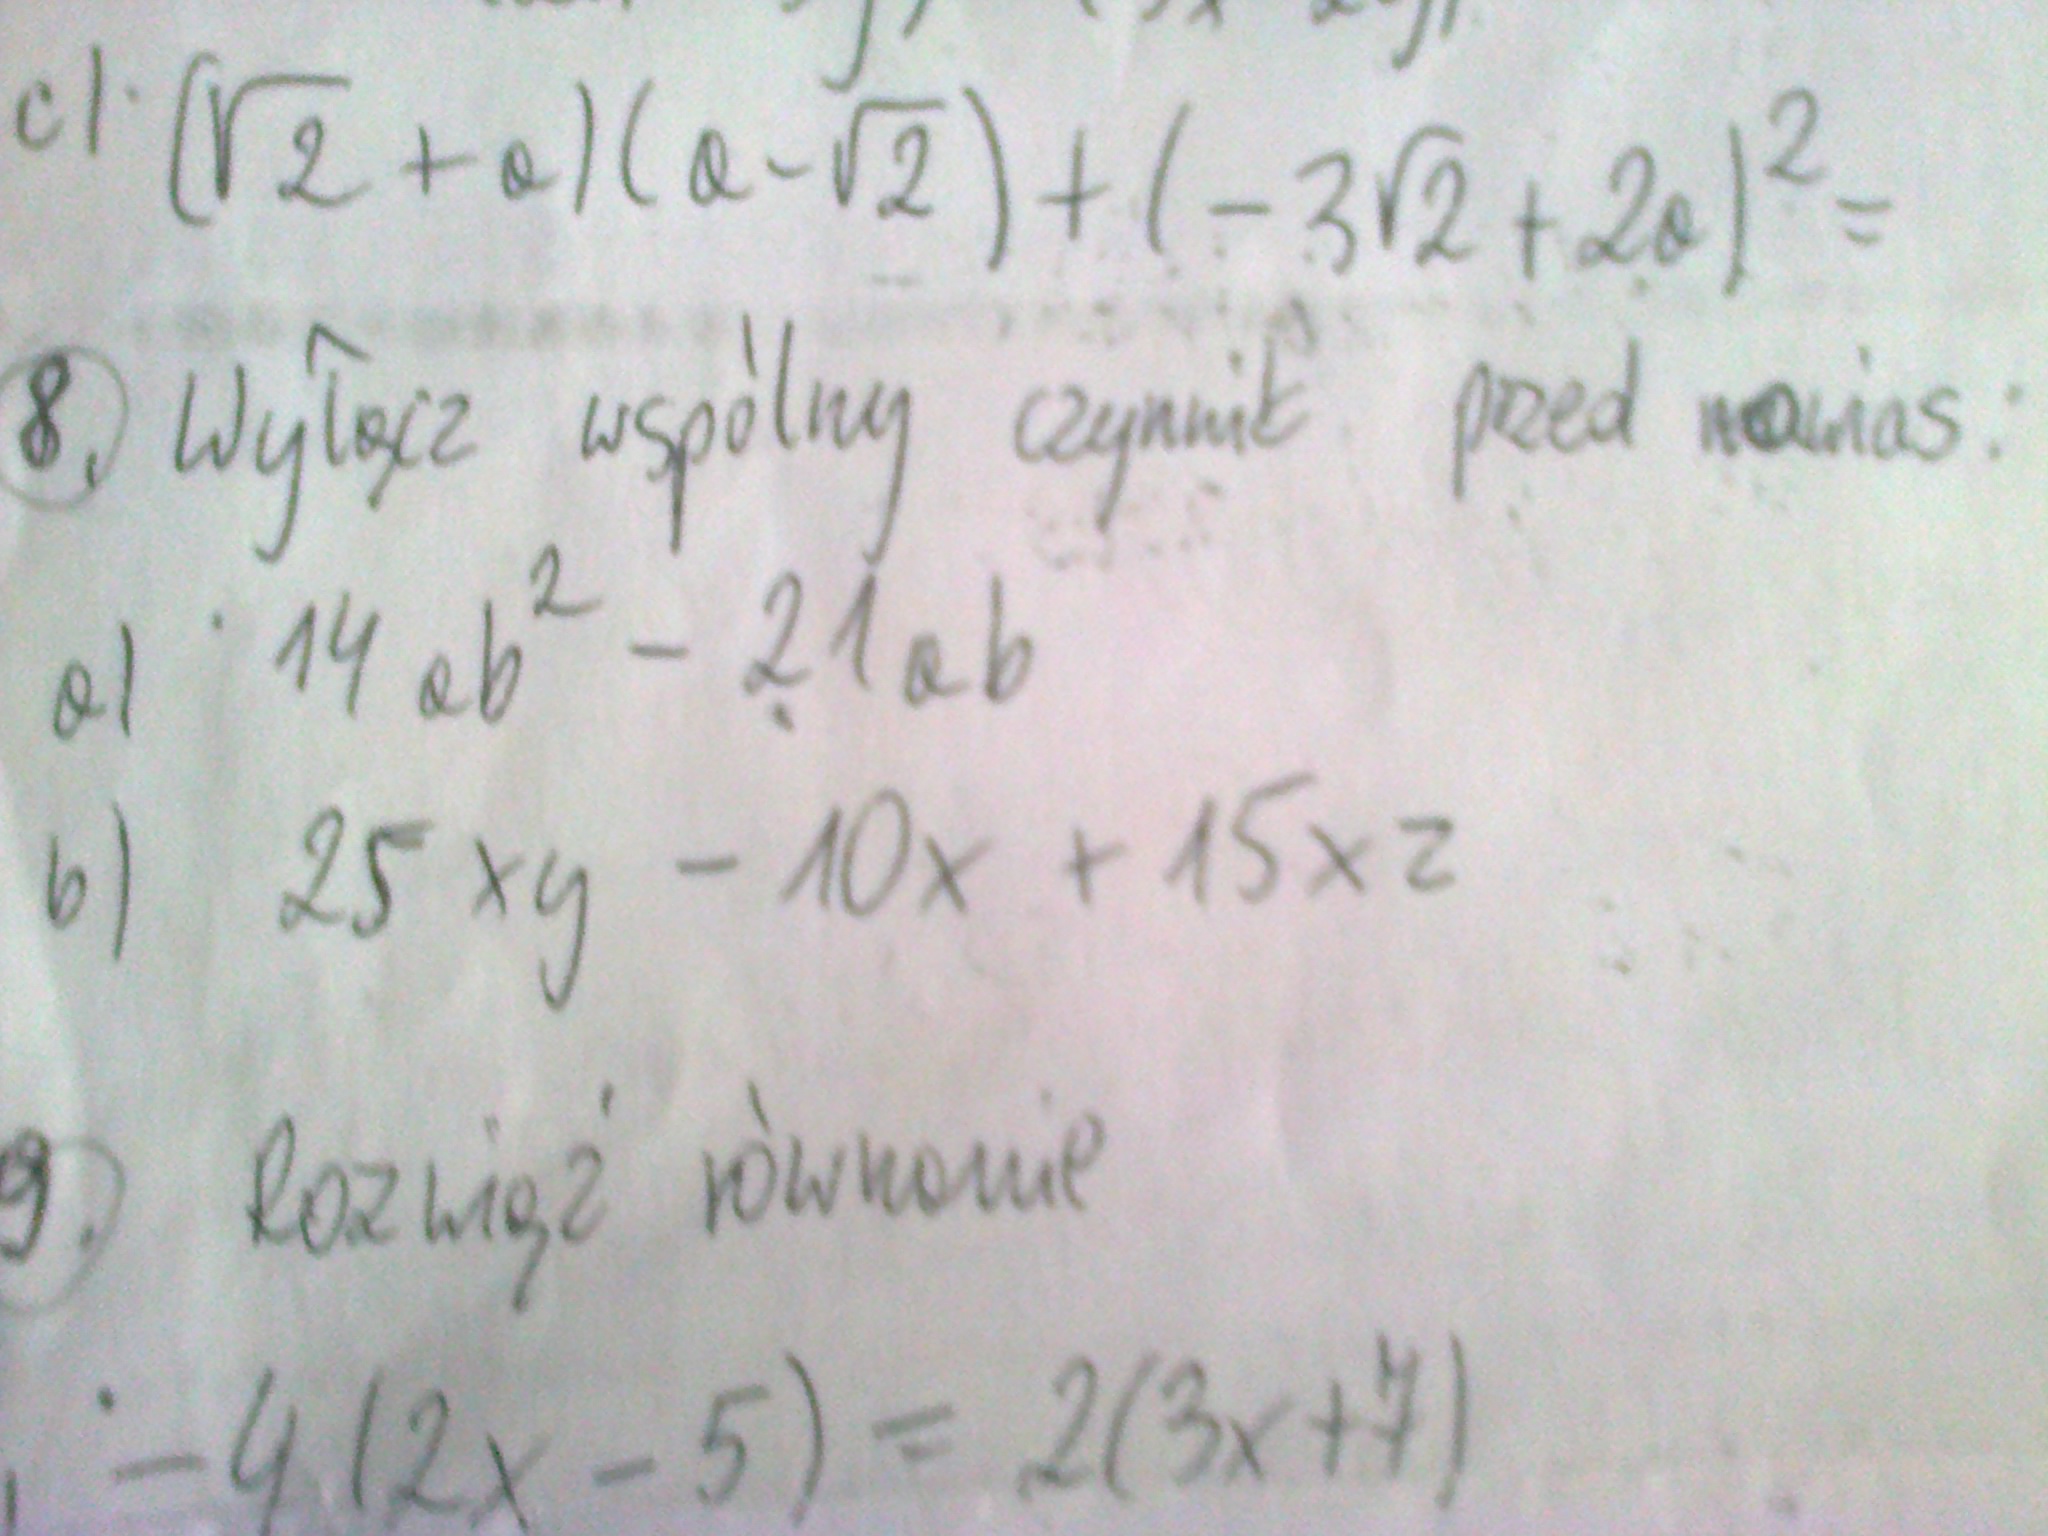 c) (√2 + a)(a - √2) + (-3√2 + 2a)² =
8. Wyłącz wspólny czynnik przed nawias:
a) 14 ab² - 21ab
b) 25 xy - 10x + 15xz
9. Rozwiąż równanie
-4(2x - 5) = 2(3x+7)